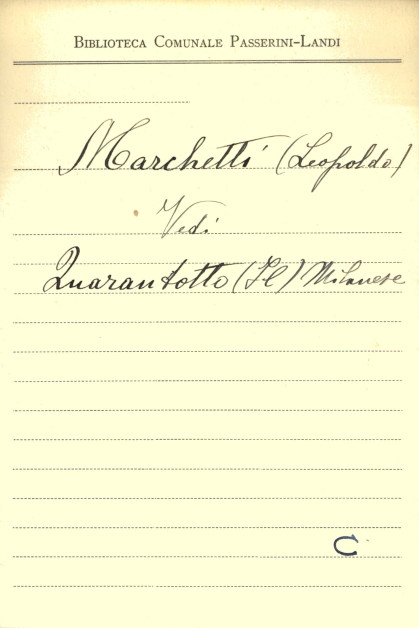 BIBLIOTECA COMUNALE PASSERINI-LANDI
Marchetti (Leopoldo)
Vedi
Quarantotto (Il) Milanese
C